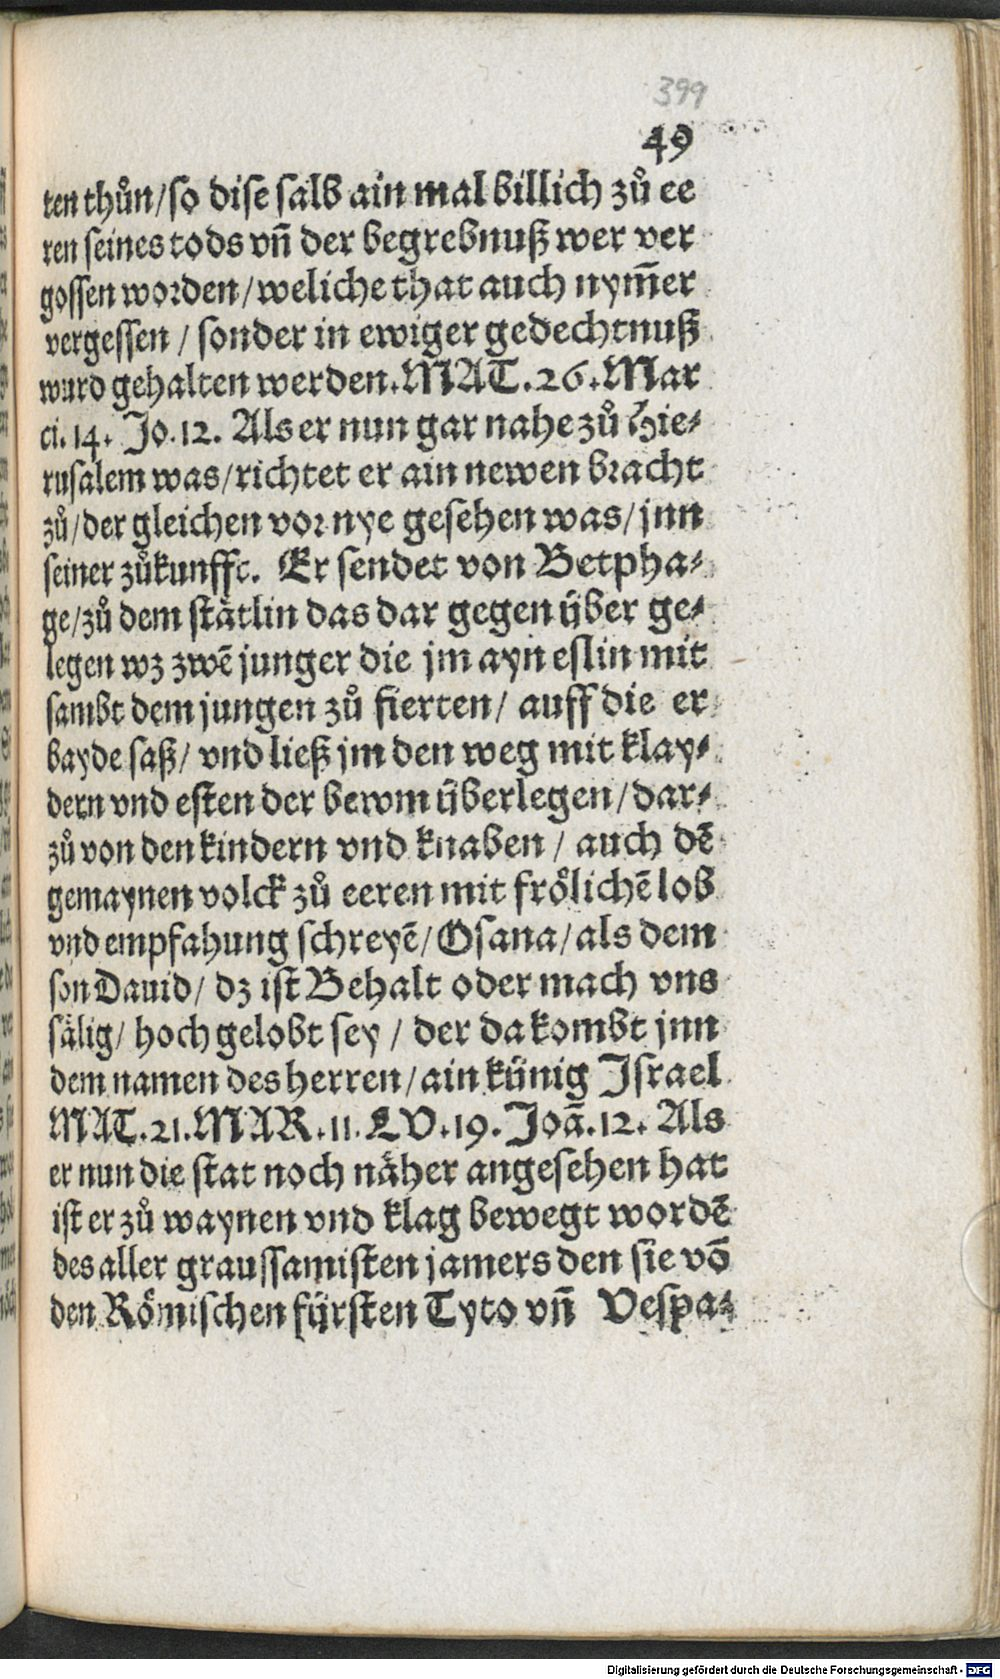 399
49
ten thůn/so dise salb ain mal billich zů ee
ren seines tods vñ der begrebnuß wer ver
gossen worden/weliche that auch nym̃er
vergessen / sonder in ewiger gedechtnuß
wurd gehalten werden. MAT. 26. Mar
ci. 14. Jo. 12. Als er nun gar nahe zů Hie-
rusalem was/richtet er ain newen bracht
zů/der gleichen vor nye gesehen was/jnn
seiner zůkunfft. Er sendet von Betpha-
ge/zů dem stätlin das dar gegen über ge-
legen wz zwẽ junger die jm ayn eslin mit
sambt dem jungen zů fierten/ auff die er
bayde saß/ vnd ließ jm den weg mit klay-
dern vnd esten der bewm überlegen/dar-
zů von den kindern vnd knaben / auch dẽ
gemaynen volck zů eeren mit frölichẽ lob
vnd empfahung schreyẽ/Osana/als dem
son Dauid/ dz ist Behalt oder mach vns
sälig/ hoch gelobt sey / der da kombt jnn
dem namen des herren/ain künig Israel
MAT. 21. MAR. 11. LV. 19. Joã. 12. Als
er nun die stat noch näher angesehen hat
ist er zů waynen vnd klag bewegt wordẽ
des aller graussamisten jamers den sie võ
den Römischen fürsten Tyto vñ Vespa-
Digitalisierung gefördert durch die Deutsche Forschungsgemeinschaft - DFG